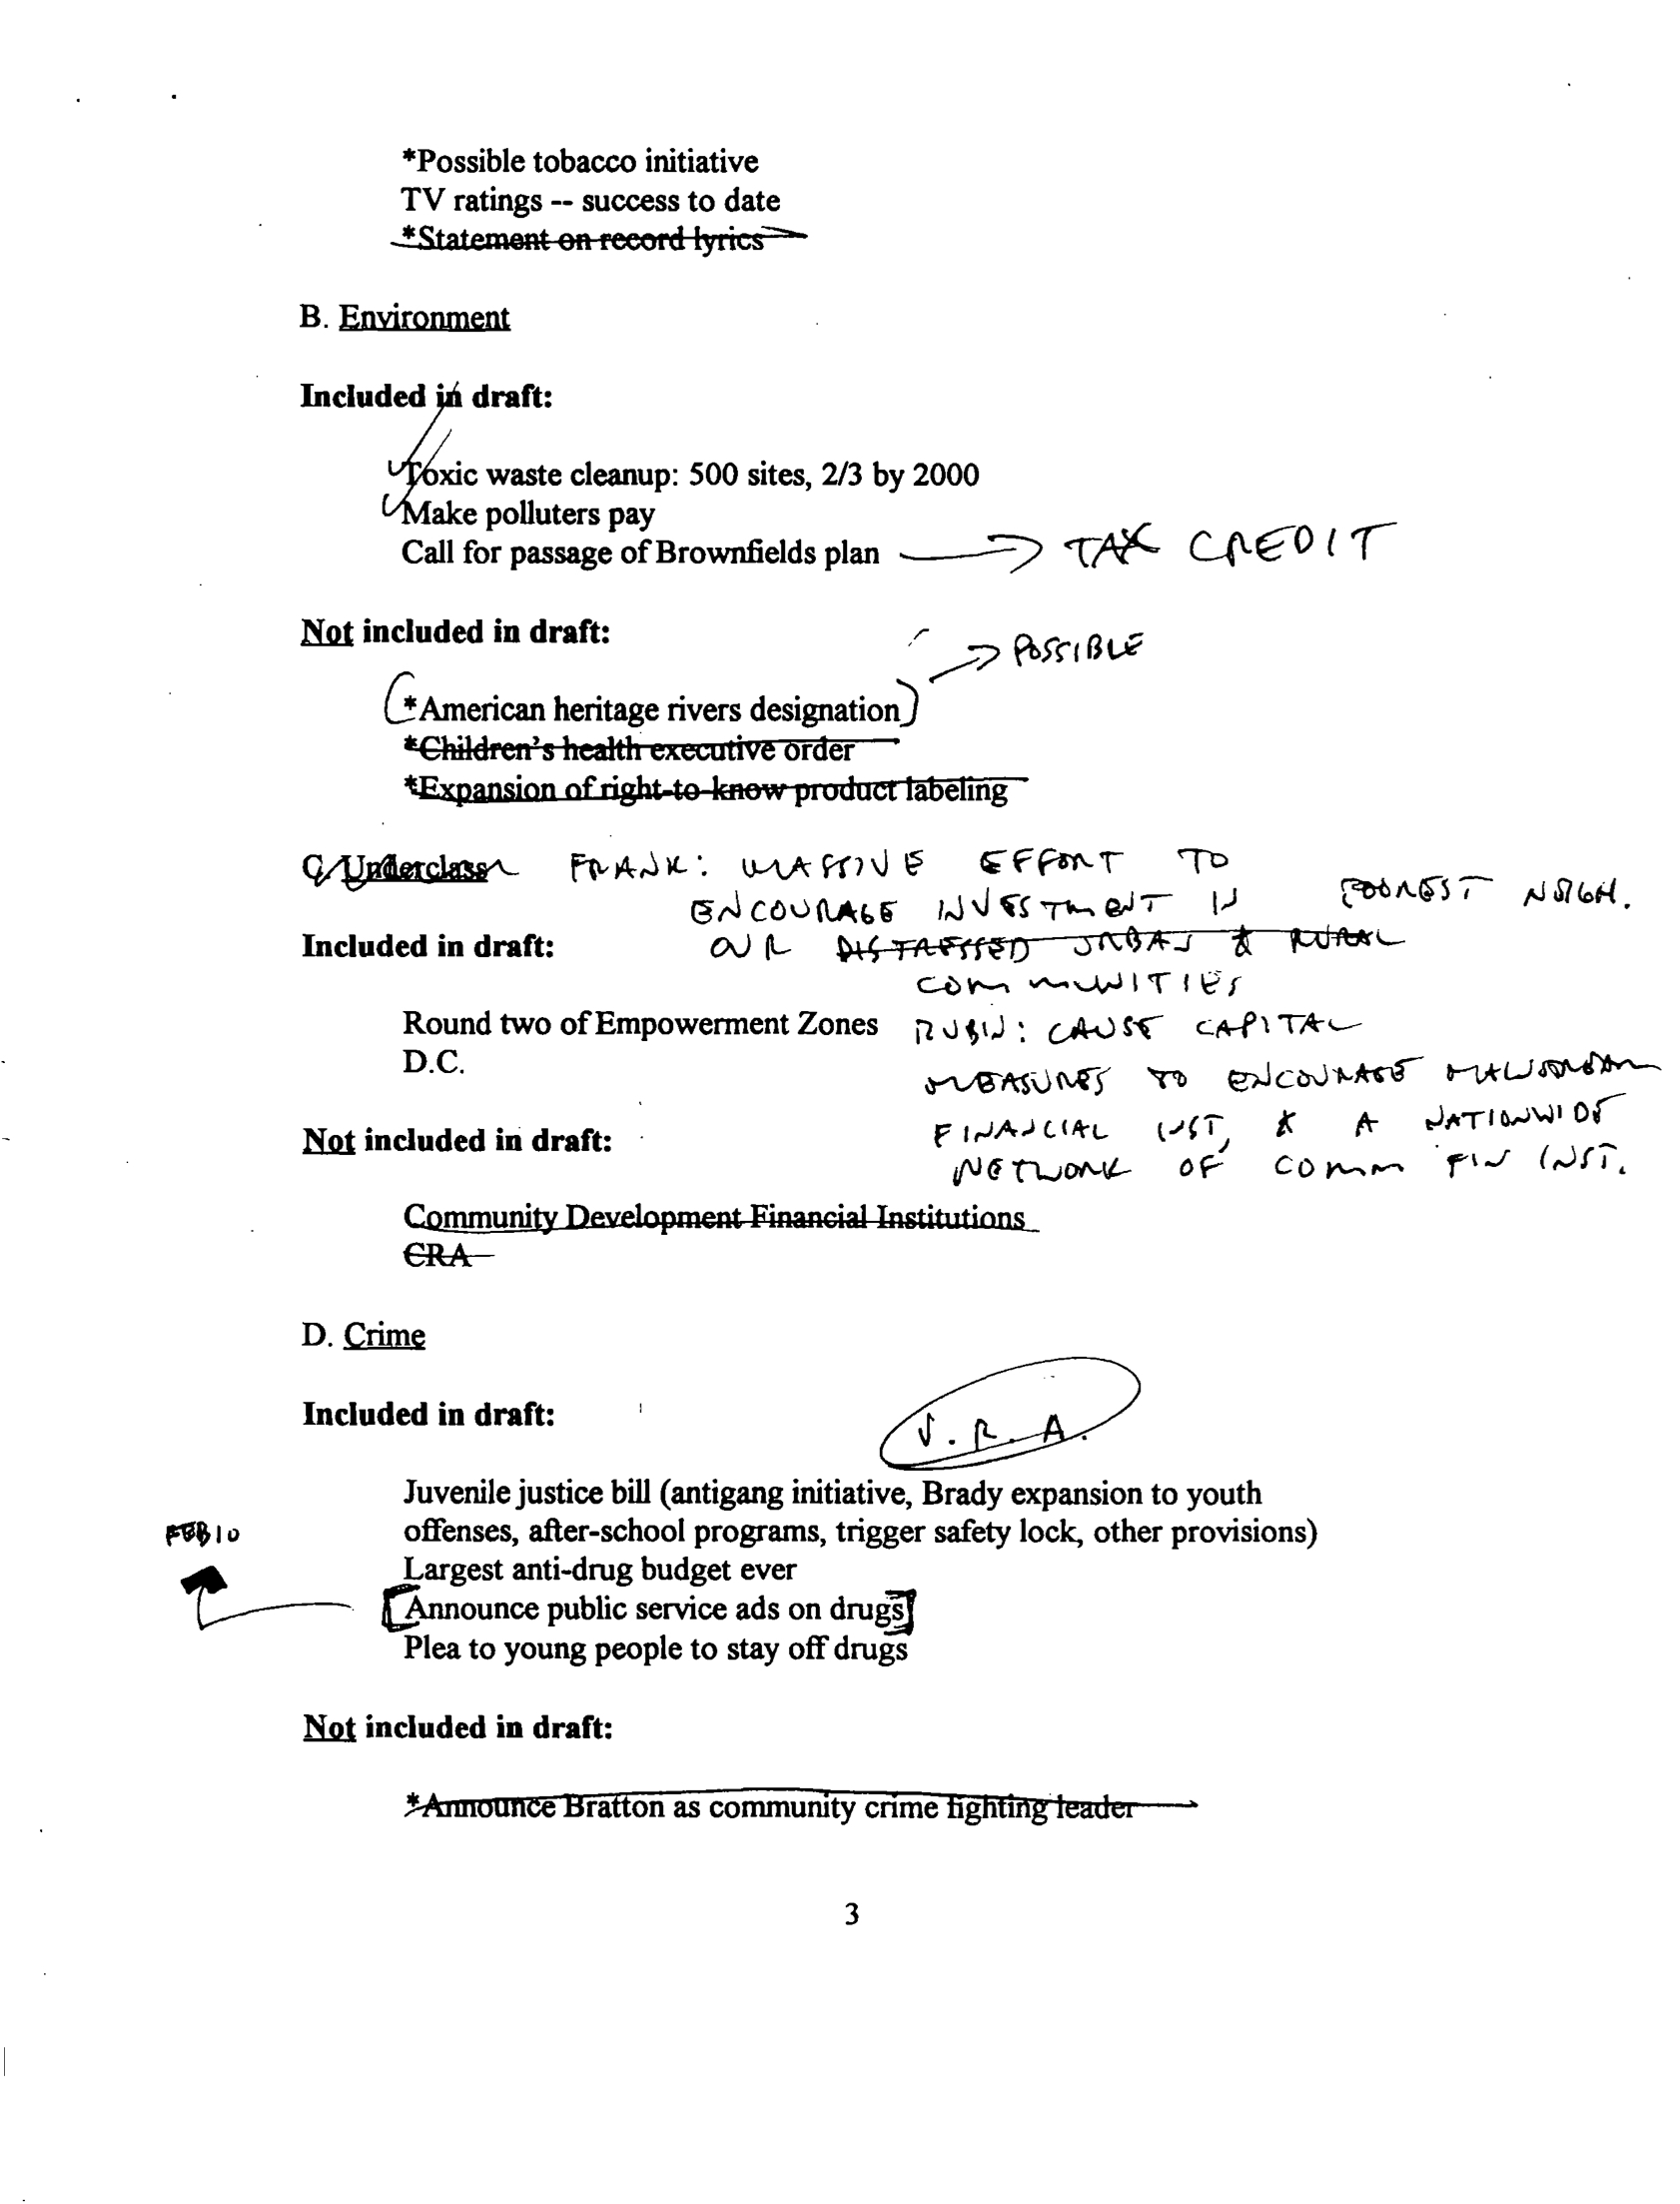 *Possible tobacco initiative
TV ratings -- success to date
*Statement on record lyrics
B. Environment
Included in draft:
Toxic waste cleanup: 500 sites, 2/3 by 2000
Make polluters pay
Call for passage of Brownfields plan → TAX CREDIT
Not included in draft:
→ POSSIBLE
(*American heritage rivers designation)
*Children's health executive order
*Expansion of right-to-know product labeling
C. Underclass FRANK: MASSIVE EFFORT TO
ENCOURAGE INVESTMENT IN POOREST NEIGH.
Included in draft: OUR DISTRESSED URBAN & RURAL
COMMUNITIES
Round two of Empowerment Zones RUBIN: CAUSE CAPITAL
D.C.
MEASURES TO ENCOURAGE MAINSTREAM
FINANCIAL INST, & A NATIONWIDE
Not included in draft:
NETWORK OF COMM FIN INST.
Community Development Financial Institutions
CRA
D. Crime
Included in draft:
V.R.A.
Juvenile justice bill (antigang initiative, Brady expansion to youth
FEB 10 offenses, after-school programs, trigger safety lock, other provisions)
Largest anti-drug budget ever
[Announce public service ads on drugs]
Plea to young people to stay off drugs
Not included in draft:
*Announce Bratton as community crime fighting leader
3